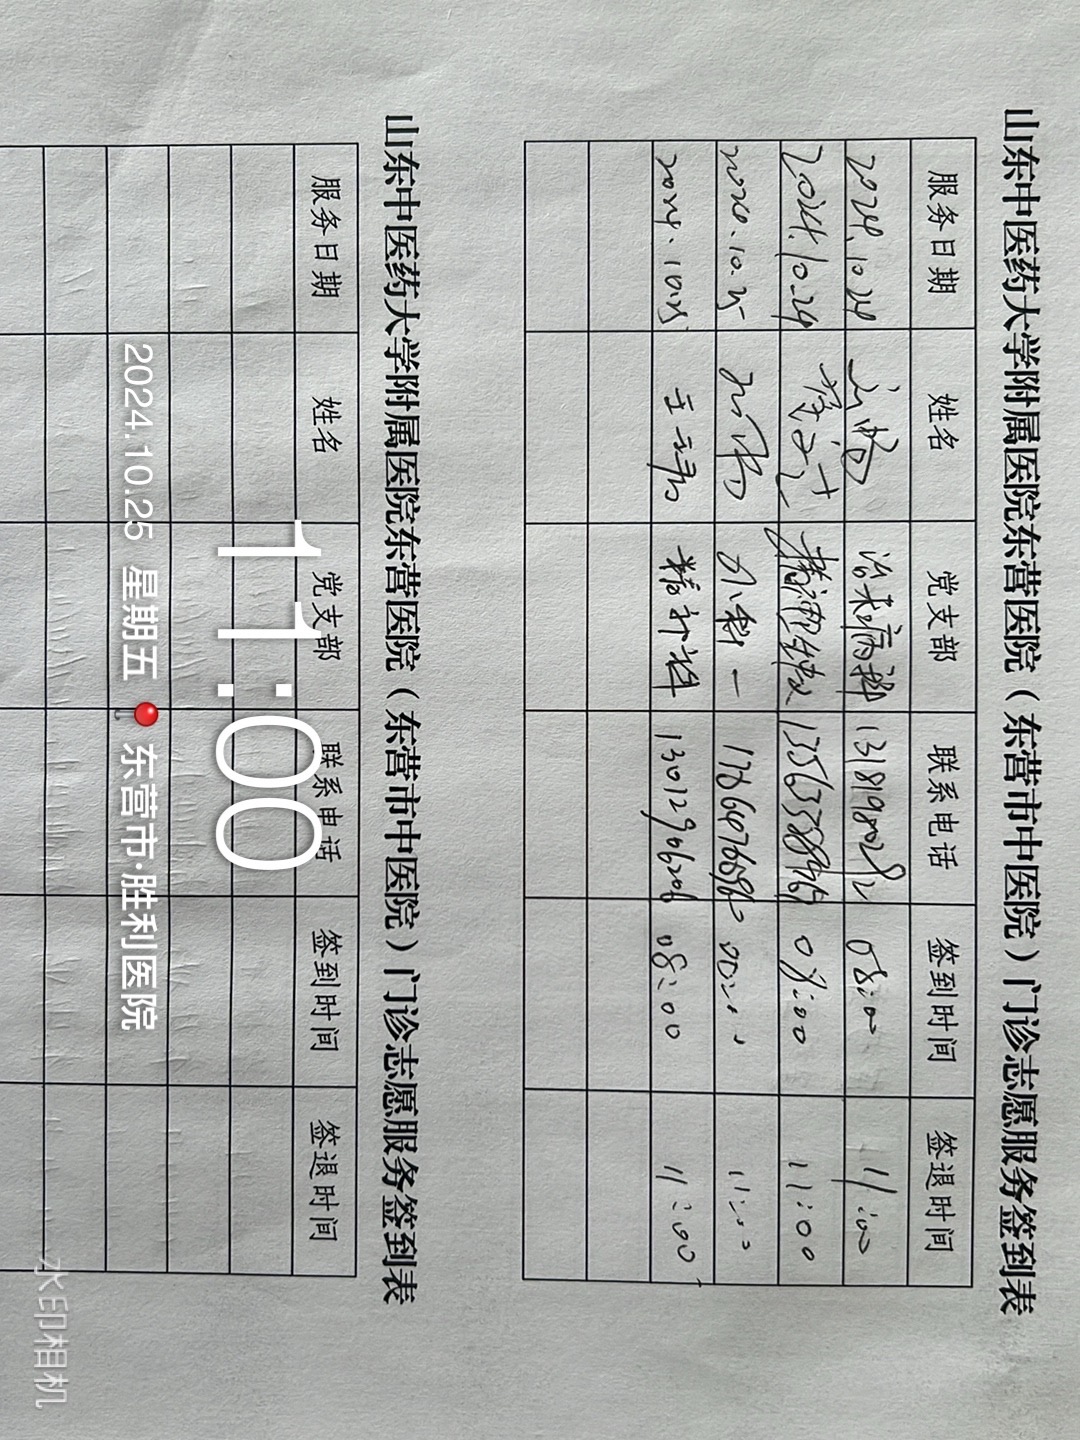 山东中医药大学附属医院东营医院（东营市中医院）门诊志愿服务签到表
服务日期 姓名 党支部 联系电话 签到时间 签退时间
2024.10.24 治未病科 08:00 11:00
2024.10.24 08:00 11:00
2024.10.25 外科一 11:00
2024.10.25 13012906206 08:00 11:00
山东中医药大学附属医院东营医院（东营市中医院）门诊志愿服务签到表
服务日期 姓名 党支部 联系电话 签到时间 签退时间
11:00
2024.10.25 星期五 东营市·胜利医院
水印相机